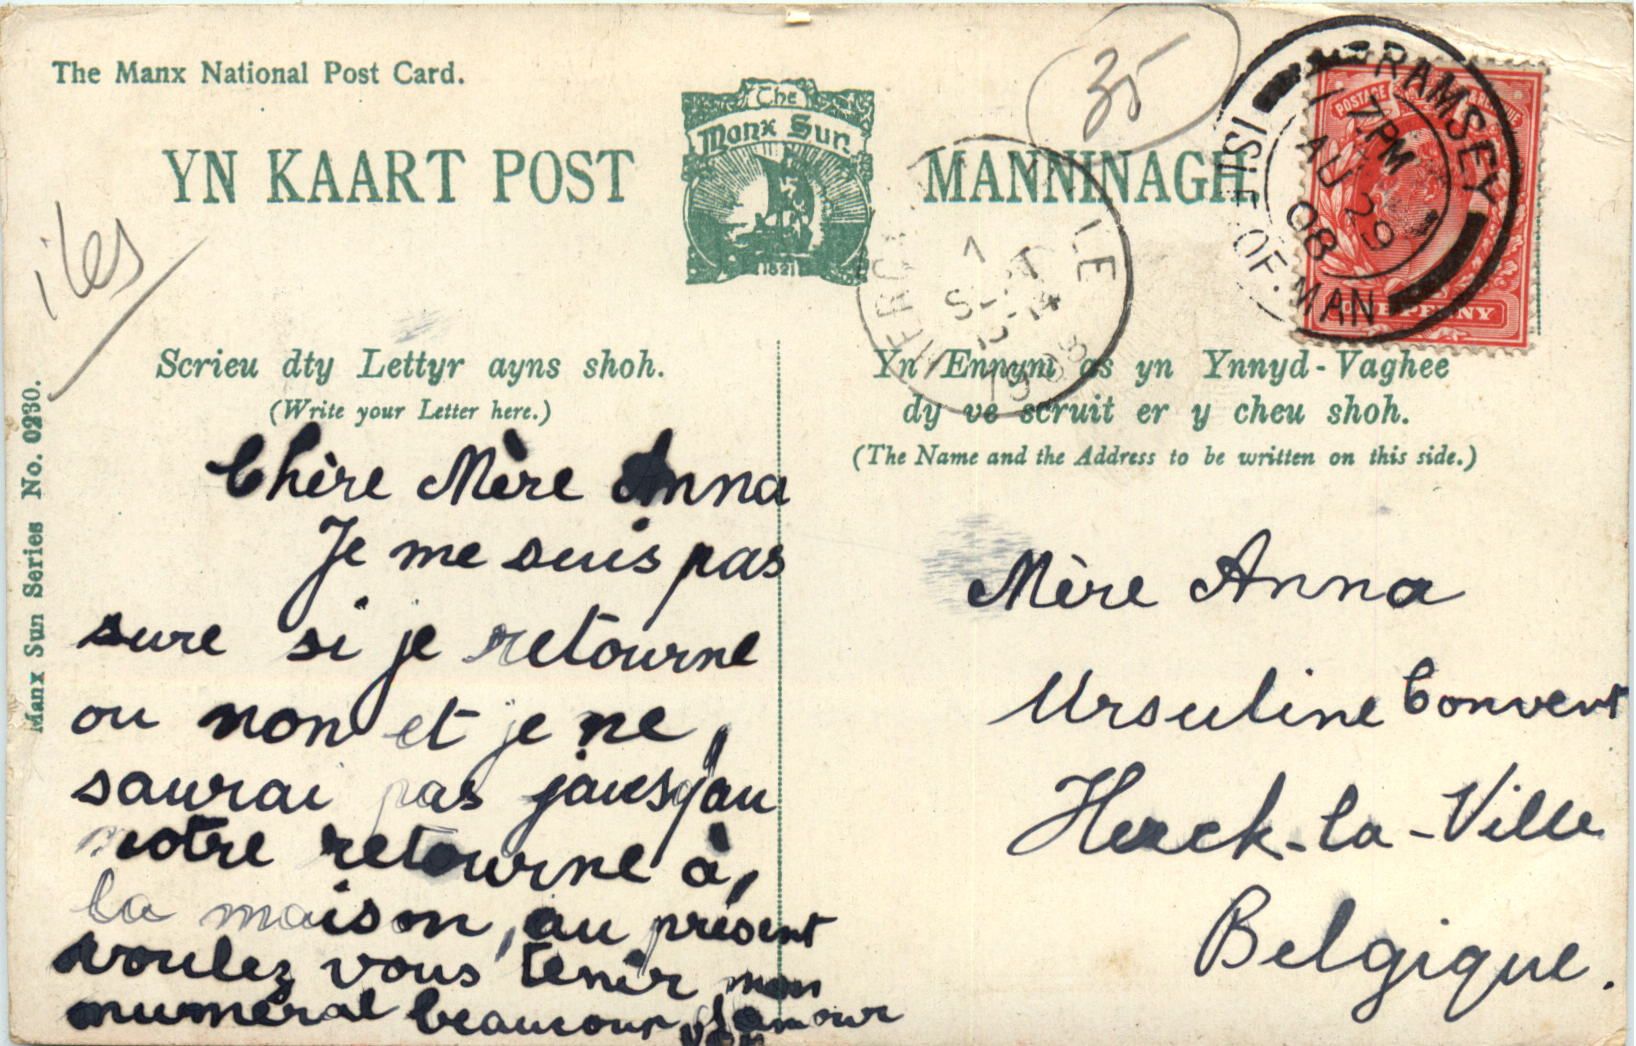 The Manx National Post Card.
YN KAART POST
The
Manx Sun
1821
MANNINAGH.
35
iles
RAMSEY
ISLE OF MAN
7 PM
AU 29
08
POSTAGE
ONE PENNY
LE
1
SEPT
1908
Manx Sun Series No. 0230.
Scrieu dty Lettyr ayns shoh.
(Write your Letter here.)
Chère Mère Anna
Je me suis pas
sure si je retourne
ou non et je ne
saurai pas jausqau
notre retourne à,
la maison, au présent
voulez vous tenir mon
numéral beaucoup d'amour
Yn Ennym as yn Ynnyd-Vaghee
dy ve scruit er y cheu shoh.
(The Name and the Address to be written on this side.)
Mère Anna
Ursuline Convent
Herck-la-Ville
Belgique.